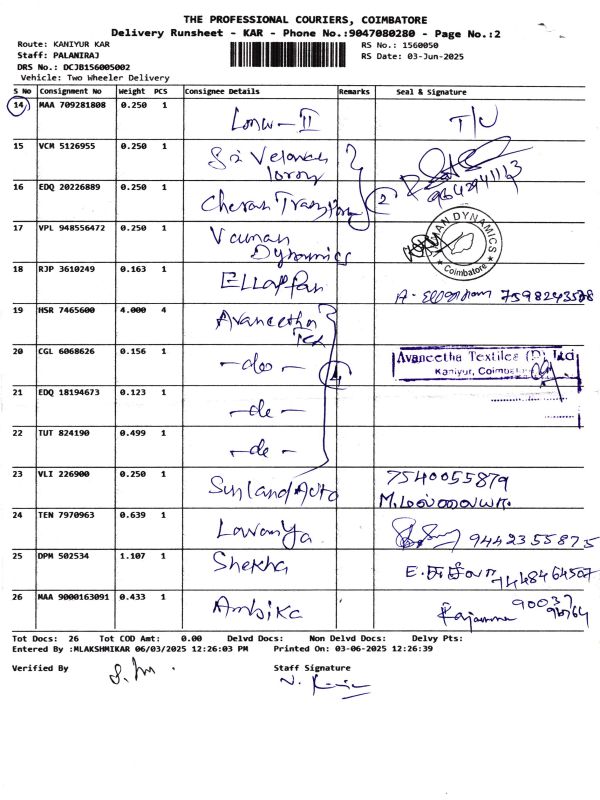 THE PROFESSIONAL COURIERS, COIMBATORE
Delivery Runsheet - KAR - Phone No.:9047080280 - Page No.:2
Route: KANIYUR KAR
RS No.: 1560050
Staff: PALANIRAJ
RS Date: 03-Jun-2025
DRS No.: DCJB156005002
Vehicle: Two Wheeler Delivery
S No Consignment No Weight PCS Consignee Details Remarks Seal & Signature
14 MAA 709281808 0.250 1
15 VCM 5126955 0.250 1 Sri
16 EDQ 20226889 0.250 1 Cheran 2
17 VPL 948556472 0.250 1 Vaman Dynamics
VAMAN DYNAMICS
Coimbatore
18 RJP 3610249 0.163 1 Ellappan 7598243568
19 HSR 7465600 4.000 4 Avaneetha Tex
20 CGL 6068626 0.156 1 -do- 4 Avaneetha Textiles (P) Ltd
Kaniyur, Coimbatore
21 EDQ 18194673 0.123 1 -do-
22 TUT 824190 0.499 1 -do-
23 VLI 226900 0.250 1 Sunland Auto 7540055879
24 TEN 7970963 0.639 1 Lavanya 9442355875
25 DPM 502534 1.107 1 Shekha
26 MAA 9000163091 0.433 1 Ambika
Tot Docs: 26 Tot COD Amt: 0.00 Delvd Docs: Non Delvd Docs: Delvy Pts:
Entered By :MLAKSHMIKAR 06/03/2025 12:26:03 PM Printed On: 03-06-2025 12:26:39
Verified By Staff Signature